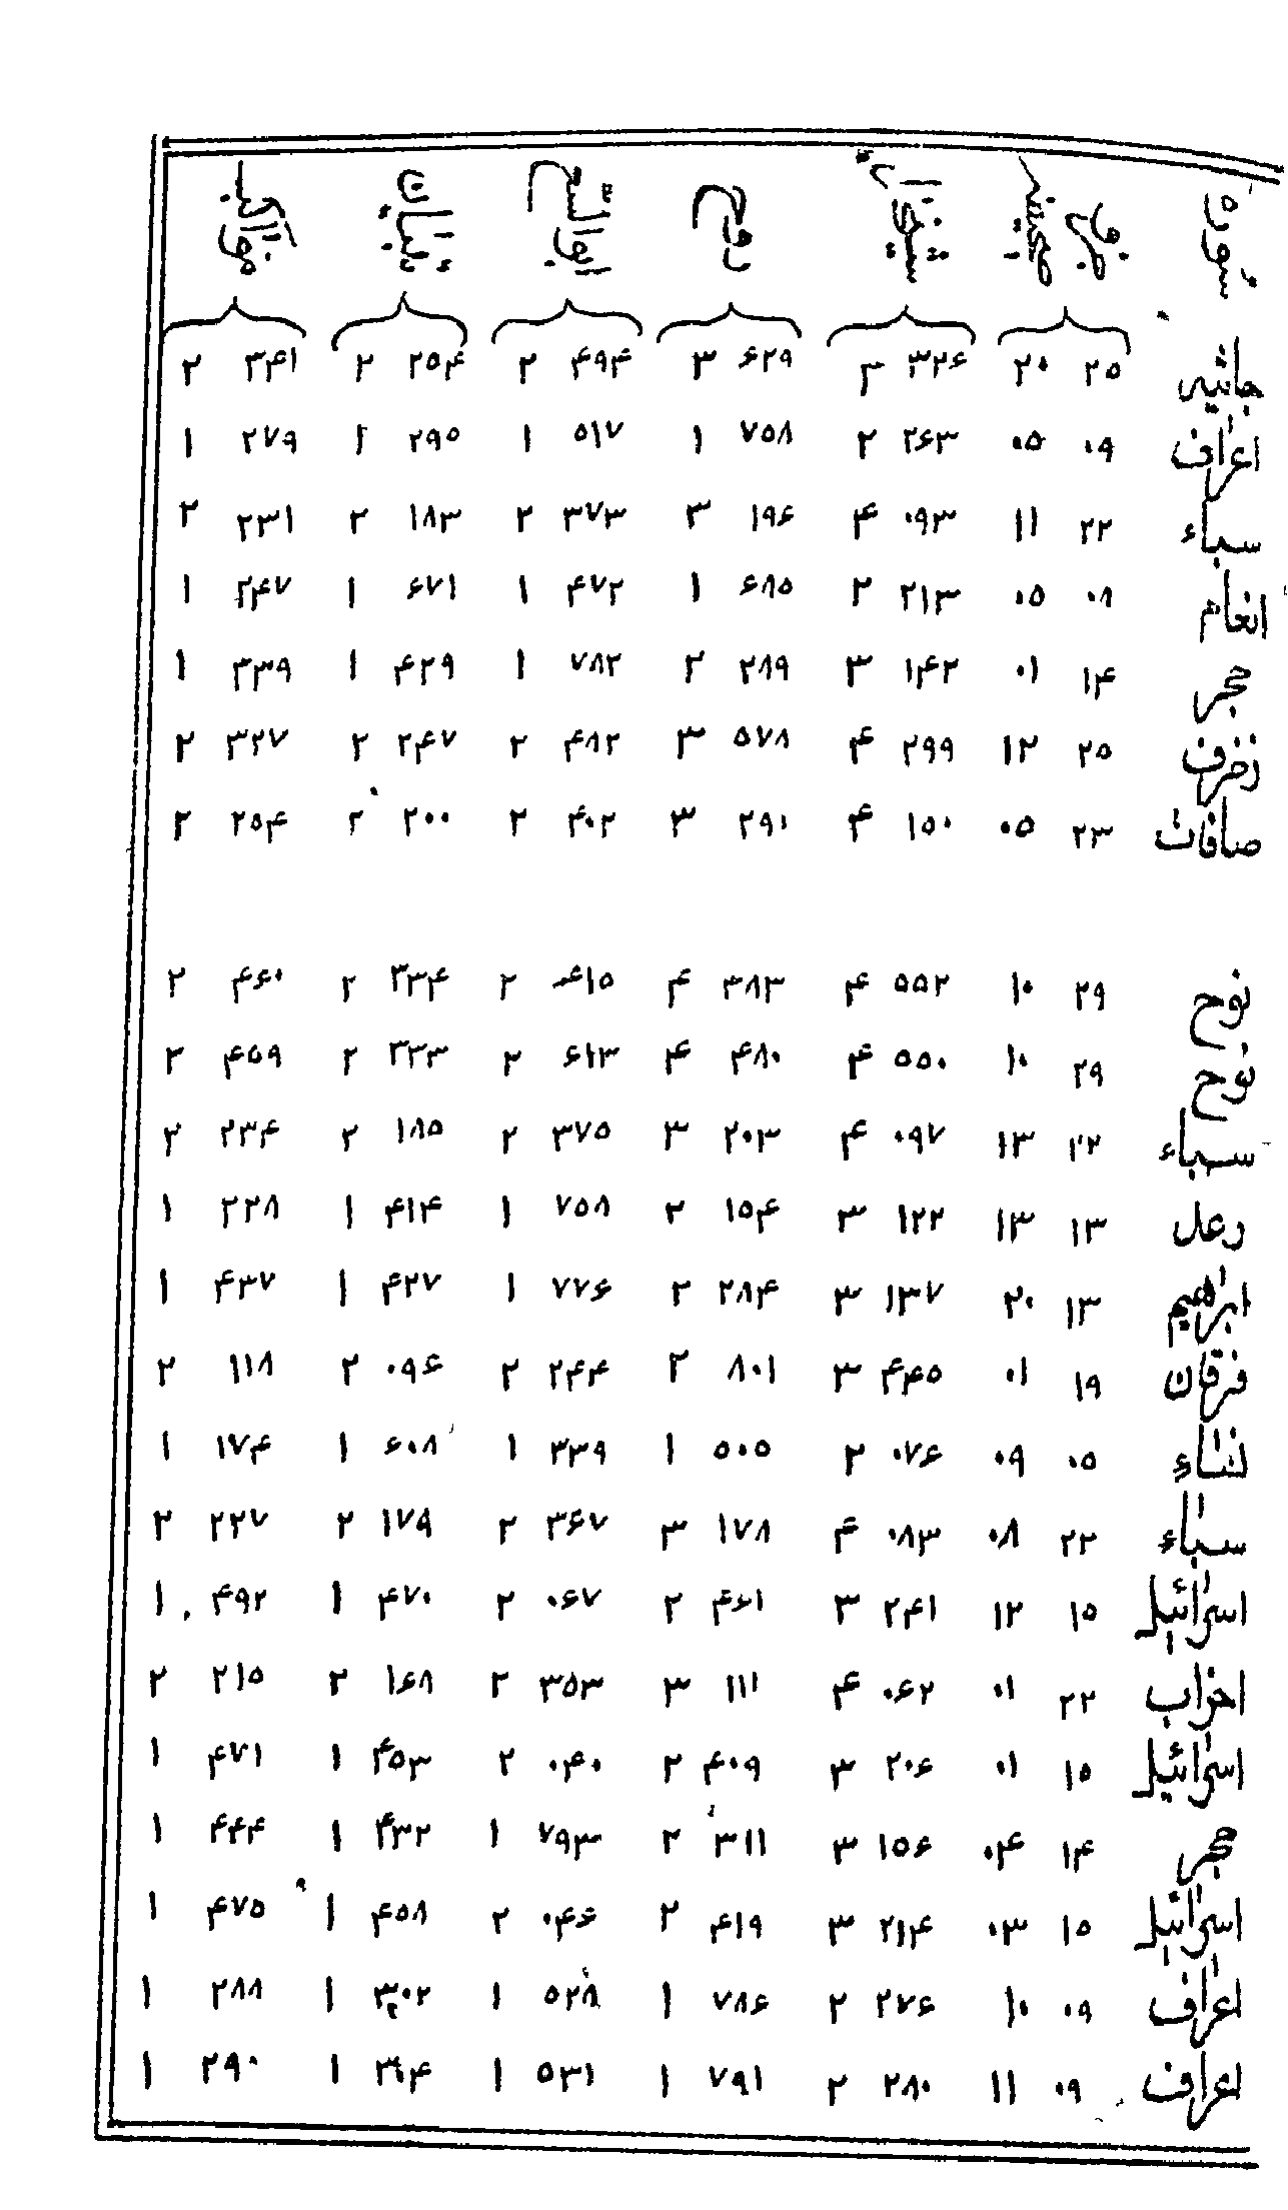 سوره جزو صحيفه شیخزاده روح ابو السعود تبیان مواكب
جاثیه ۲۵ ۲۰ ۳۲۶ ۳ ۶۲۹ ۳ ۴۹۴ ۲ ۲۵۴ ۲ ۳۴۱ ۲
اعراف ۰۹ ۰۵ ۲۶۳ ۲ ۷۵۸ ۱ ۵۱۷ ۱ ۲۹۵ ۱ ۲۷۹ ۱
سباء ۲۲ ۱۱ ۰۹۳ ۴ ۱۹۶ ۳ ۳۷۳ ۲ ۱۸۳ ۲ ۲۳۱ ۲
انعام ۰۸ ۰۵ ۲۱۳ ۲ ۶۸۵ ۱ ۴۷۲ ۱ ۶۷۱ ۱ ۲۴۷ ۱
حجر ۱۴ ۰۱ ۱۴۲ ۳ ۲۸۹ ۲ ۷۸۲ ۱ ۴۲۹ ۱ ۳۳۹ ۱
زخرف ۲۵ ۱۲ ۲۹۹ ۴ ۵۷۸ ۳ ۴۸۲ ۲ ۲۴۷ ۲ ۳۲۷ ۲
صافات ۲۳ ۰۵ ۱۵۰ ۴ ۲۹۱ ۳ ۴۰۲ ۲ ۲۰۰ ۲ ۲۵۴ ۲
نوح ۲۹ ۱۰ ۵۵۲ ۴ ۳۸۳ ۴ ۶۱۵ ۲ ۳۳۴ ۲ ۴۶۰ ۲
نوح ۲۹ ۱۰ ۵۵۰ ۴ ۴۸۰ ۴ ۶۱۳ ۲ ۳۳۳ ۲ ۴۵۹ ۲
سباء ۲۲ ۱۳ ۰۹۷ ۴ ۲۰۳ ۳ ۳۷۵ ۲ ۱۸۵ ۲ ۲۳۴ ۲
رعد ۱۳ ۱۳ ۱۲۲ ۳ ۱۵۴ ۲ ۷۵۸ ۱ ۴۱۴ ۱ ۲۲۸ ۱
ابراهیم ۱۳ ۲۰ ۱۳۷ ۳ ۲۸۴ ۲ ۷۷۶ ۱ ۴۲۷ ۱ ۴۳۷ ۱
فرقان ۱۹ ۰۱ ۴۴۵ ۳ ۸۰۱ ۲ ۲۴۴ ۲ ۰۹۶ ۲ ۱۱۸ ۲
نساء ۰۵ ۰۹ ۰۷۶ ۲ ۵۰۵ ۱ ۳۳۹ ۱ ۶۰۸ ۱ ۱۷۴ ۱
سباء ۲۲ ۰۸ ۰۸۳ ۴ ۱۷۸ ۳ ۳۶۷ ۲ ۱۷۹ ۲ ۲۲۷ ۲
اسرائیل ۱۵ ۱۲ ۲۴۱ ۳ ۴۶۱ ۲ ۰۶۷ ۲ ۴۷۰ ۱ ۴۹۲ ۱
احزاب ۲۲ ۰۱ ۰۶۲ ۴ ۱۱۱ ۳ ۳۵۳ ۲ ۱۶۸ ۲ ۲۱۵ ۲
اسرائیل ۱۵ ۰۱ ۲۰۶ ۳ ۴۰۹ ۲ ۰۴۰ ۲ ۴۵۳ ۱ ۴۷۱ ۱
حجر ۱۴ ۰۴ ۱۵۶ ۳ ۳۱۱ ۲ ۷۹۳ ۱ ۴۳۲ ۱ ۴۴۴ ۱
اسرائیل ۱۵ ۰۳ ۲۱۴ ۳ ۴۱۹ ۲ ۰۴۶ ۲ ۴۵۸ ۱ ۴۷۵ ۱
اعراف ۰۹ ۱۰ ۲۷۶ ۲ ۷۸۶ ۱ ۵۲۸ ۱ ۳۰۲ ۱ ۲۸۸ ۱
اعراف ۰۹ ۱۱ ۲۸۰ ۲ ۷۹۱ ۱ ۵۳۱ ۱ ۱ ۲۹۰ ۱